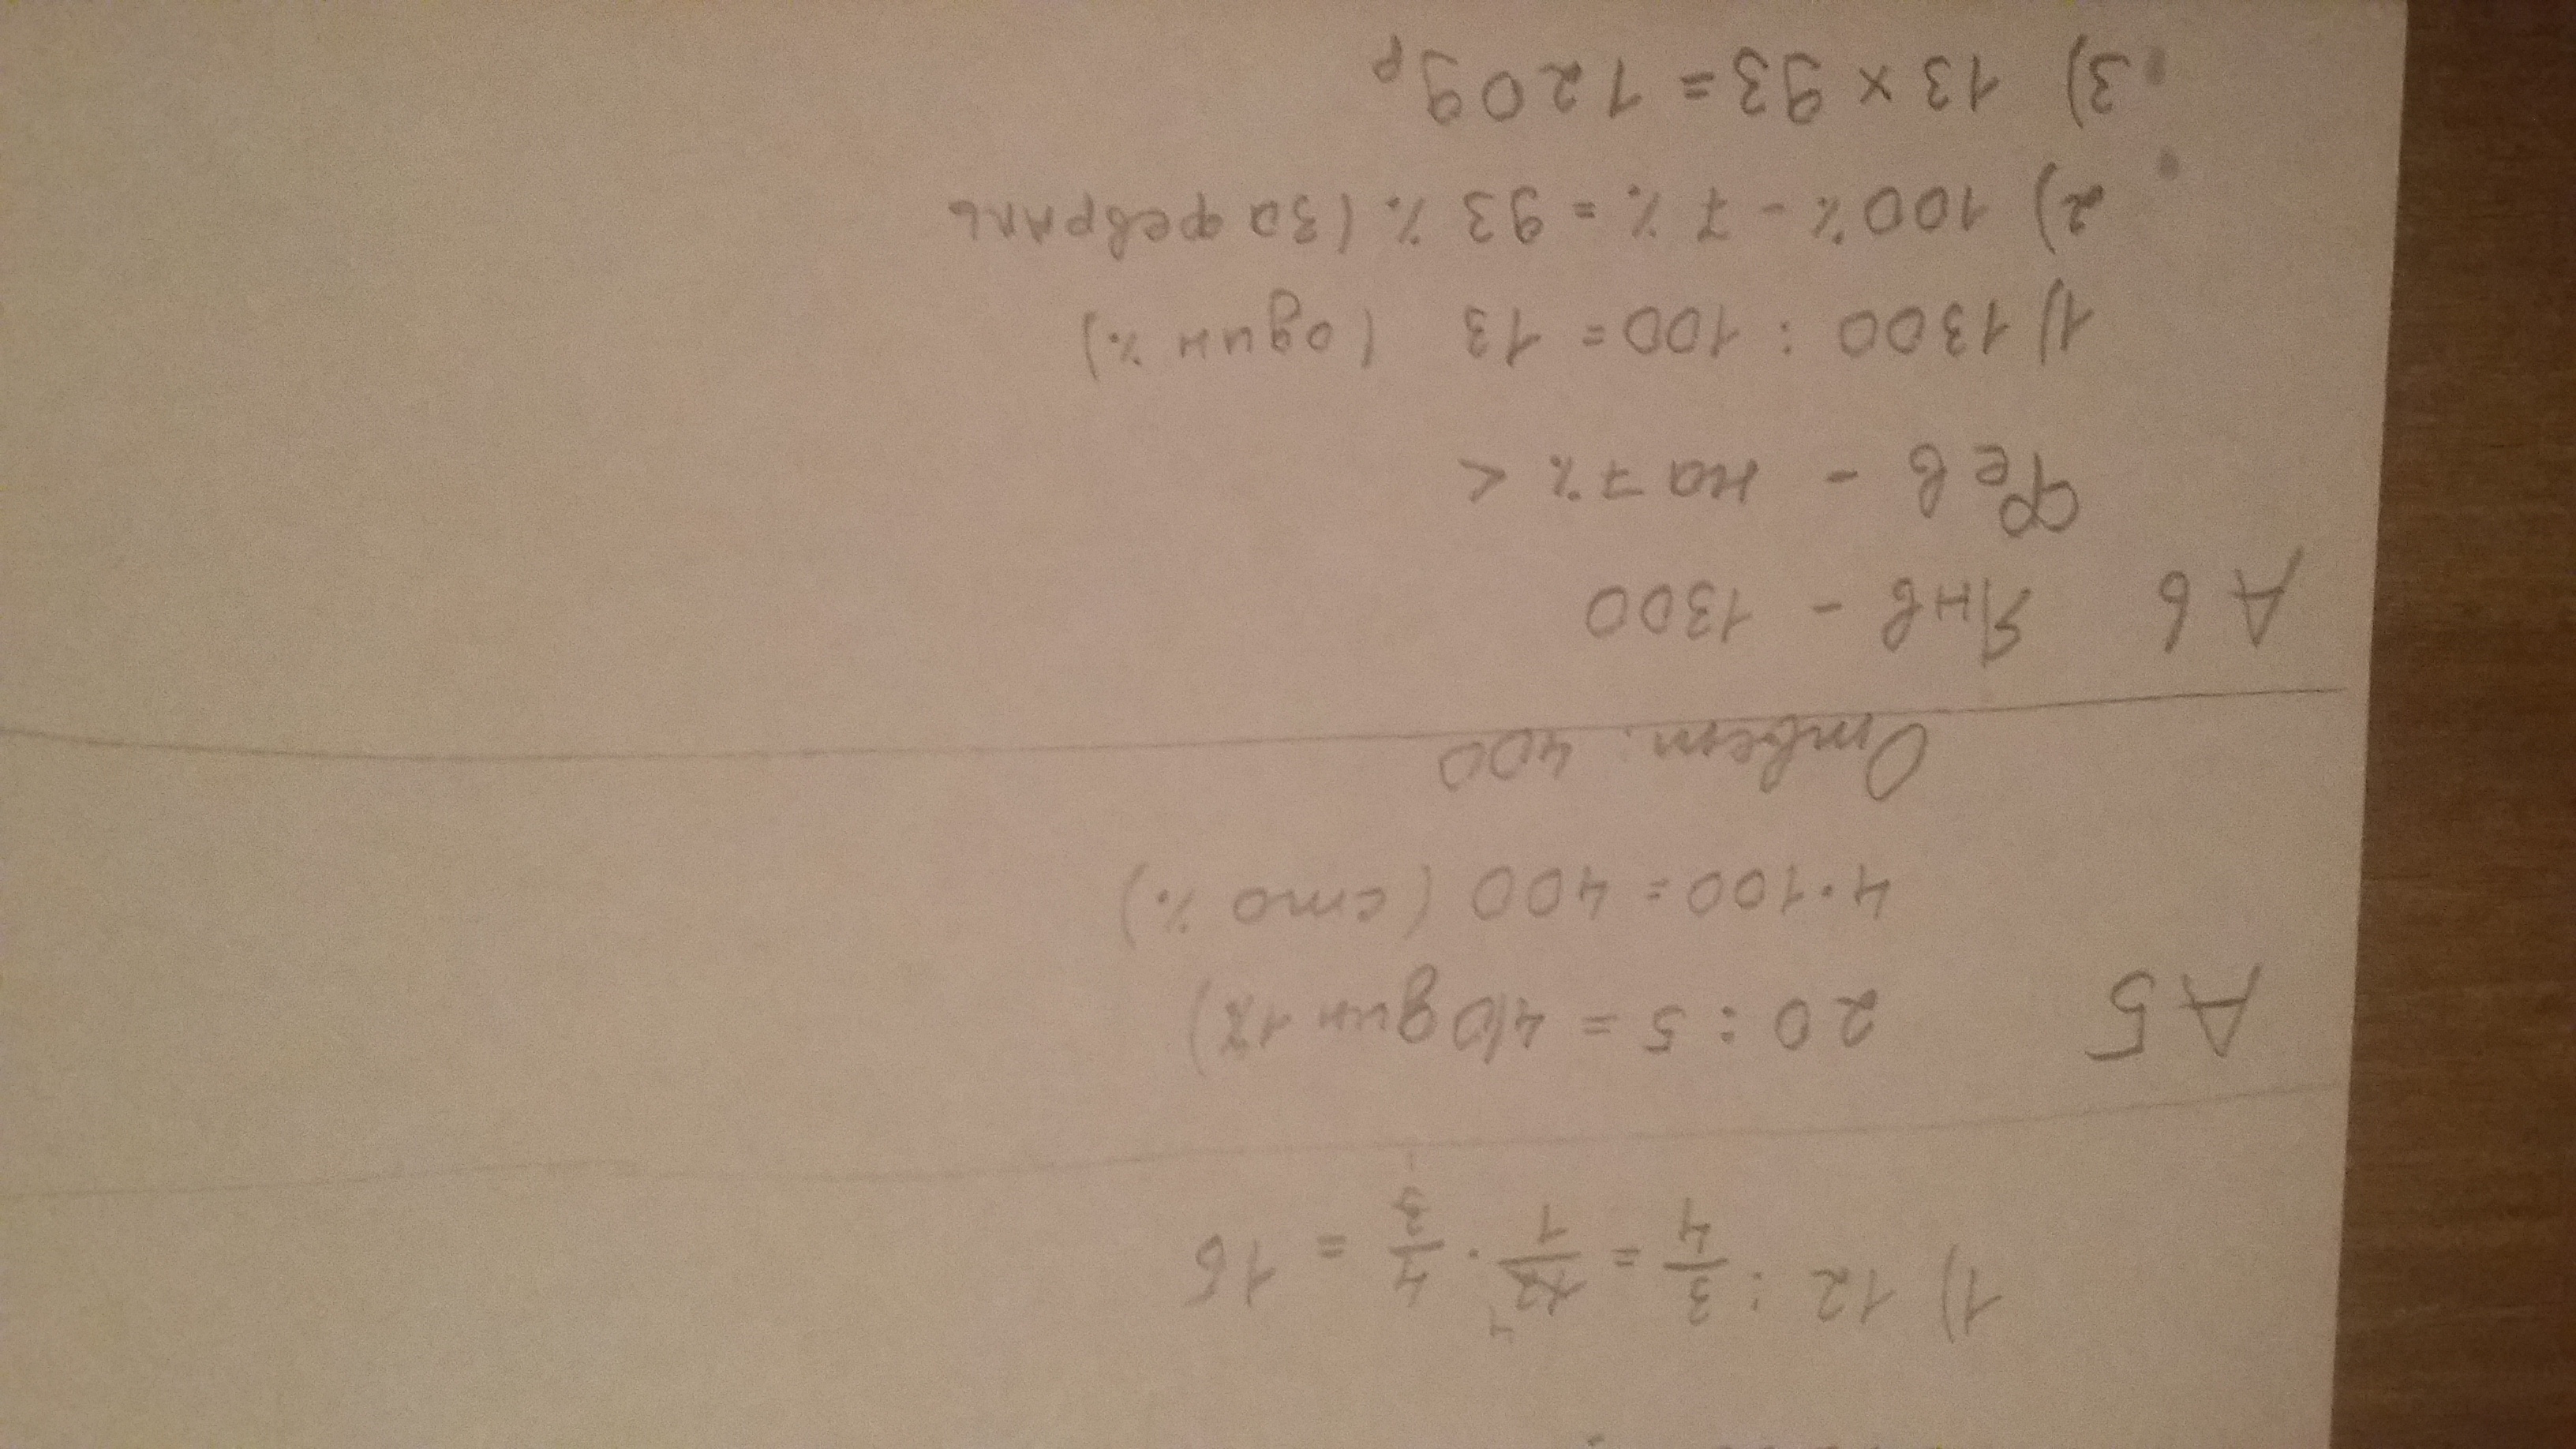 1) 12 : 3/4 = 12/1 · 4/3 = 16
A5 20 : 5 = 4 (один 1%)
4·100 = 400 (сто %)
Ответ: 400
А6 Янв - 1300
Фев - на 7% <
1) 1300 : 100 = 13 (один %)
2) 100% - 7% = 93% (за февраль
3) 13 × 93 = 1209р